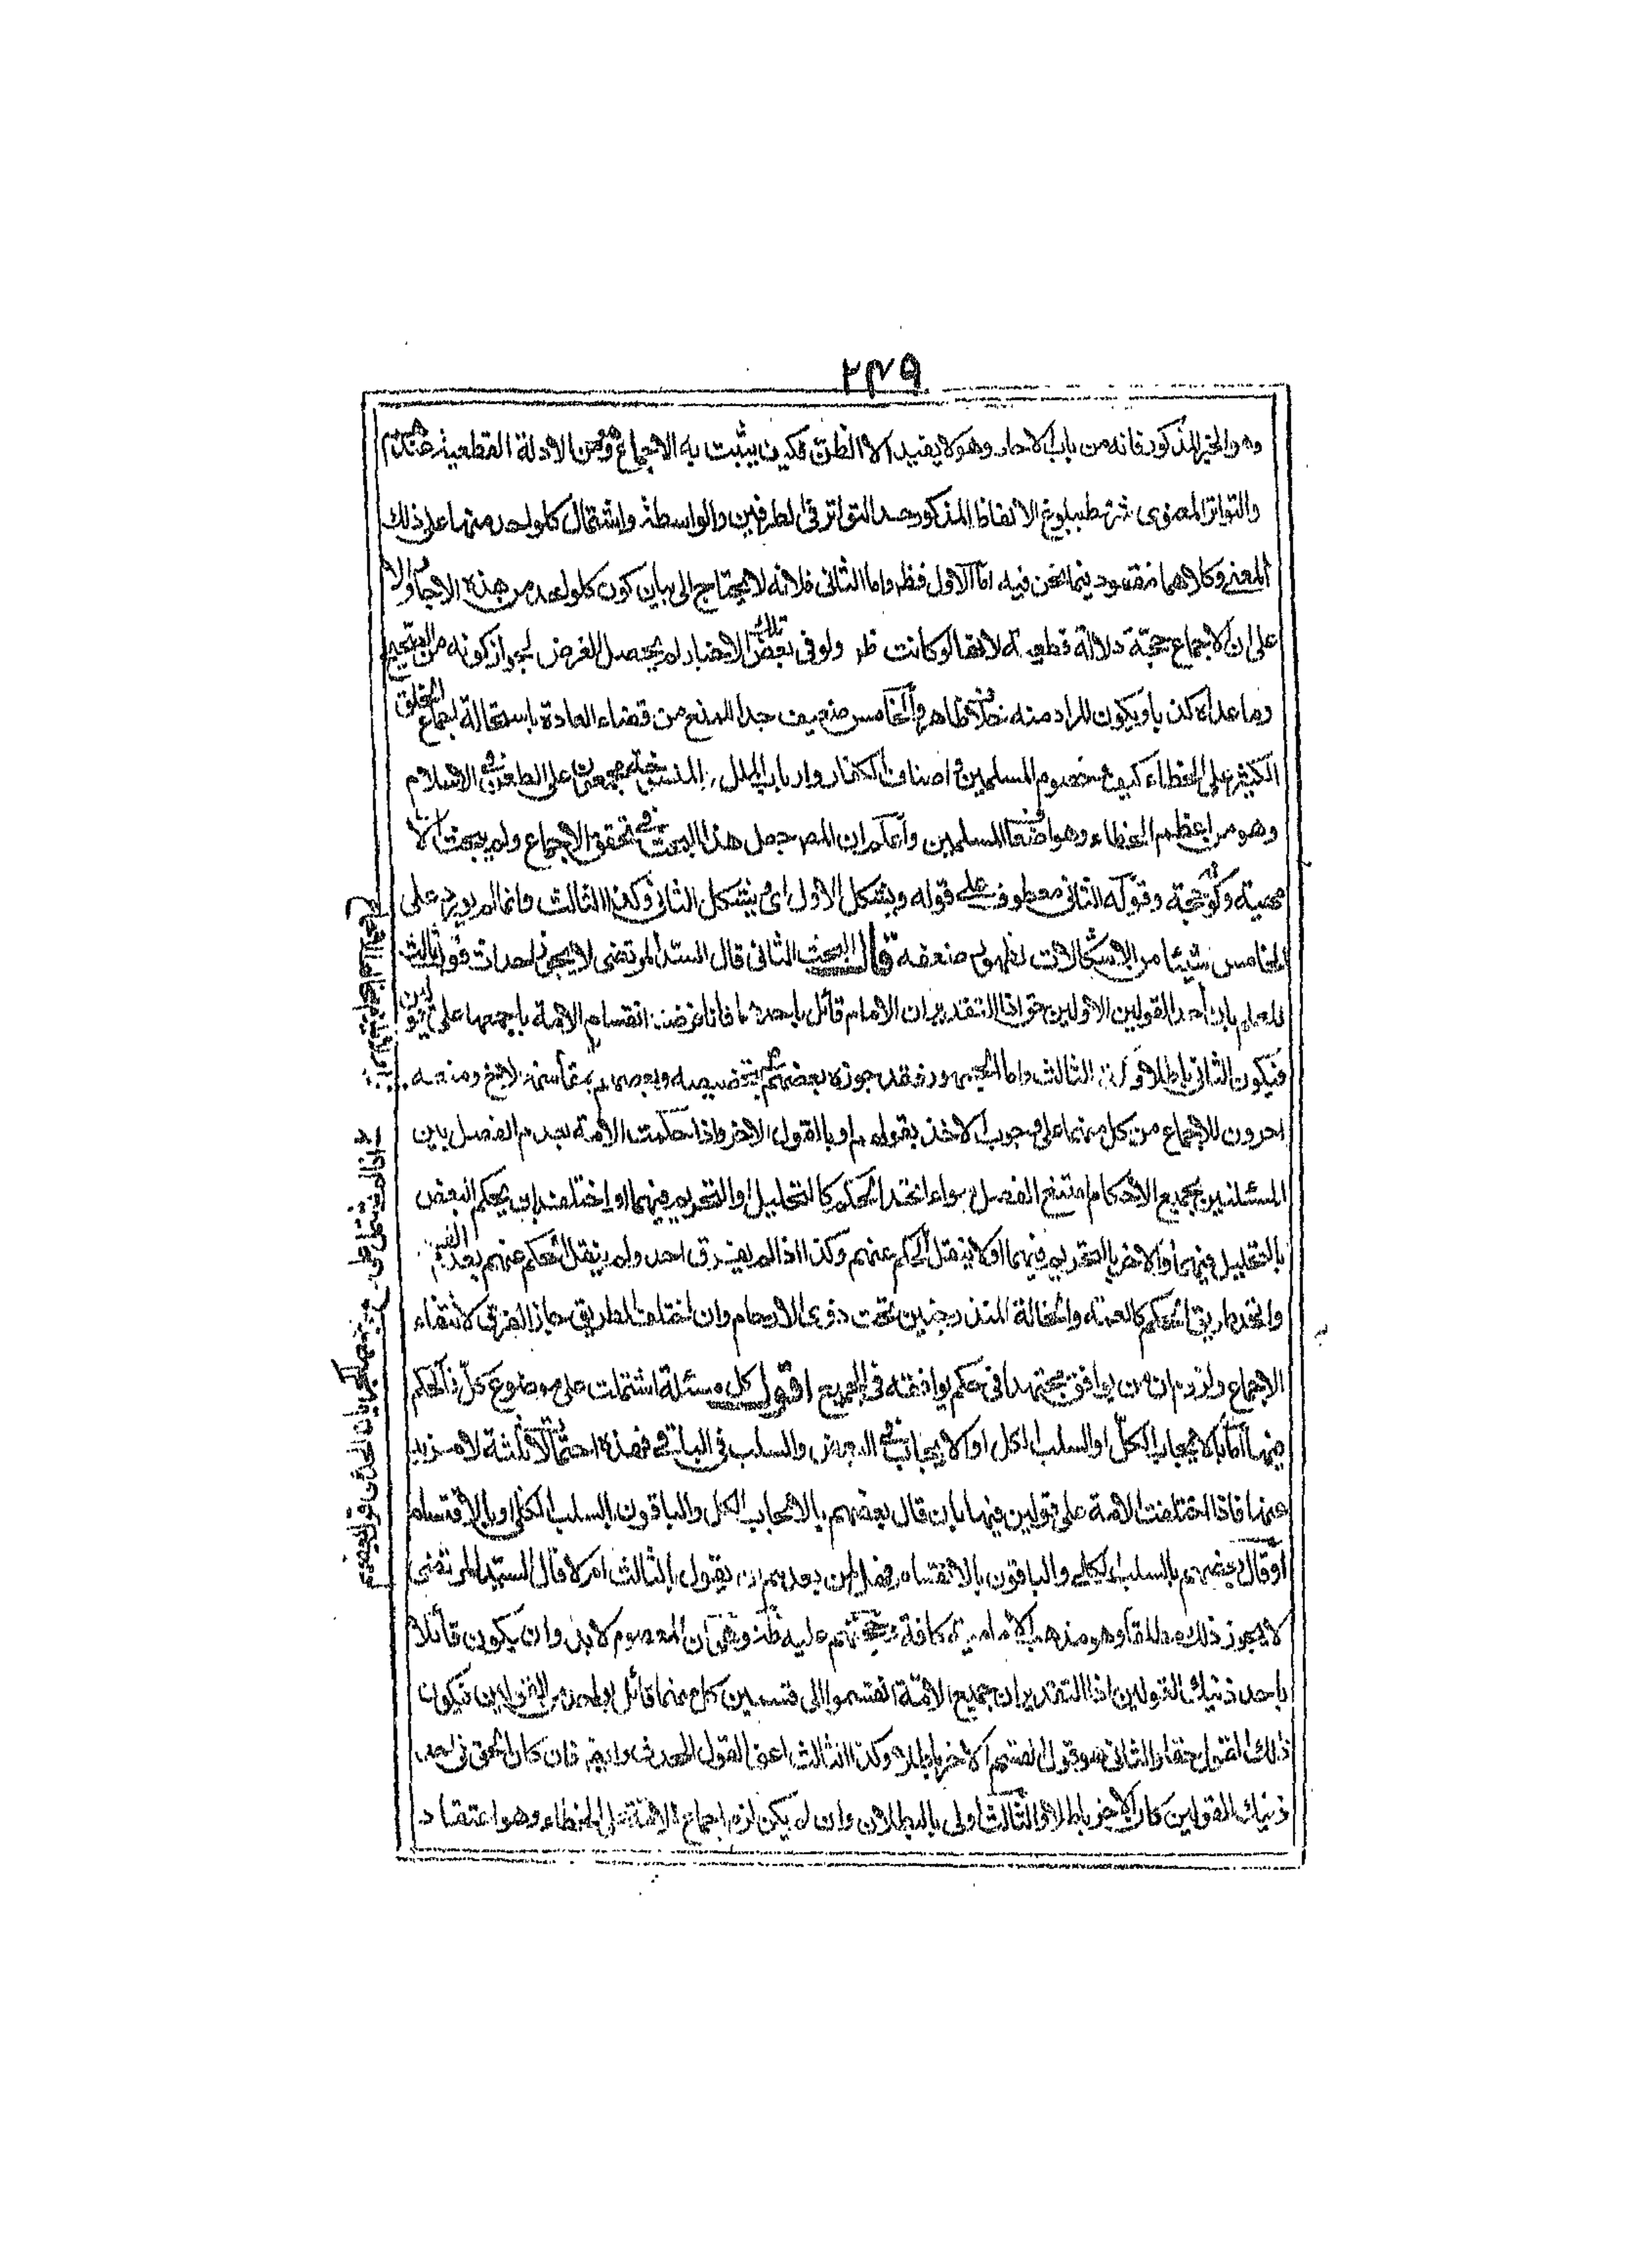 ٢٣٩
وهو الخبر المذكور فانه من باب الاحاد وهو لا يفيد الا الظن فكيف يثبت به الاجماع وهو من الادلة القطعية عندكم
والتواتر المعنوى شرطه بلوغ الالفاظ المذكور حد التواتر فى الطرفين والواسطة واشتمال كل واحد منها على ذلك
المعنى وكلاهما مفقود فيما نحن فيه اما الاول فظ واما الثانى فلانه لا يحتاج الى بيان كون كل واحد من هذه الاخبار دالا
على ان الاجماع حجة دلالة قطعية لانها لو كانت ظ ولو فى بعض تلك الاخبار لم يحصل الغرض لجواز كونه هو الصحيح
وما عداه كذبا ويكون المراد منه خلاف ظاهره والخامس ضعيف جدا للمنع من قضاء العادة باستحالة اجماع الخلق
الكثير على الخطاء كيف وخصوم المسلمين فى اصناف الكفار وارباب الملل مجمعون على الطعن فى الاسلام
وهو من اعظم الخطاء وهم اضعاف المسلمين واعلم ان المص جعل هذا البحث فى تحقق الاجماع ولم يبحث الا
حجيته وكونه حجة وقوله الثانى معطوف على قوله ويشكل الاول اى يشكل الثانى وكذا الثالث وانما لم يورد على
الخامس شيئا من الاشكالات لظهور ضعفه قال البحث الثانى قال السيد المرتضى لا يجوز احداث قول ثالث
للعلم بان احد القولين الاولين حق اذ التقدير ان الامام قائل باحدهما فانا فرضنا انقسام الامة باجمعها على قولين
فيكون الثانى باطلا وكذا الثالث واما الجمهور فقد جوزه بعضهم ومنعه
اخرون للاجماع من كل منهما على وجوب الاخذ بقوله او بالقول الاخر واذا حكمت الامة بعدم الفصل بين
المسئلتين بجميع الاحكام امتنع الفصل سواء اتحد الحكم كالتحليل او التحريم فيهما او اختلف بان يحكم البعض
بالتحليل فيهما والاخر بالتحريم فيهما او لا ينقل الحكم عنهم وكذا اذا لم يفرق احد ولم ينقل الحكم عنهم بعدم الفرق
واتحد طريق الحكم كالعمة والخالة المندرجتين تحت ذوى الارحام وان اختلف الطريق جاز الفرق لانتفاء
الاجماع ولزوم ان من يوافق مجتهدا فى حكم يوافقه فى الجميع اقول كل مسئلة اشتملت على موضوع كلى فالحكم
فيها اما بالايجاب الكلى او السلب الكلى او الايجاب فى البعض والسلب فى الباقى فهذه احتمالات ثلثة لا مزيد
عنها فاذا اختلفت الامة على قولين فيها بان قال بعضهم بالايجاب الكلى والباقون بالسلب الكلى او بالاقتسام
او قال بعضهم بالسلب الكلى والباقون بالاقتسام فهل لمن بعدهم ان يقول بالثالث ام لا قال السيد المرتضى
لا يجوز ذلك مطلقا وهو مذهب الامامية كافة وحجتهم عليه ظ وهى ان المعصوم لا بد وان يكون قائلا
باحد ذينك القولين اذ التقدير ان جميع الامة انقسموا الى قسمين كل منهما قائل بواحد من القولين فيكون
ذلك القول حقا والثانى هو قول القسم الاخر باطلا وكذا الثالث اعنى القول المحدث وايضا فان كان الحق فى احد
ذينك القولين كان الاخر باطلا والثالث اولى بالبطلان وان لم يكن لزم اجماع الامة على الخطاء وهو اعتقاد